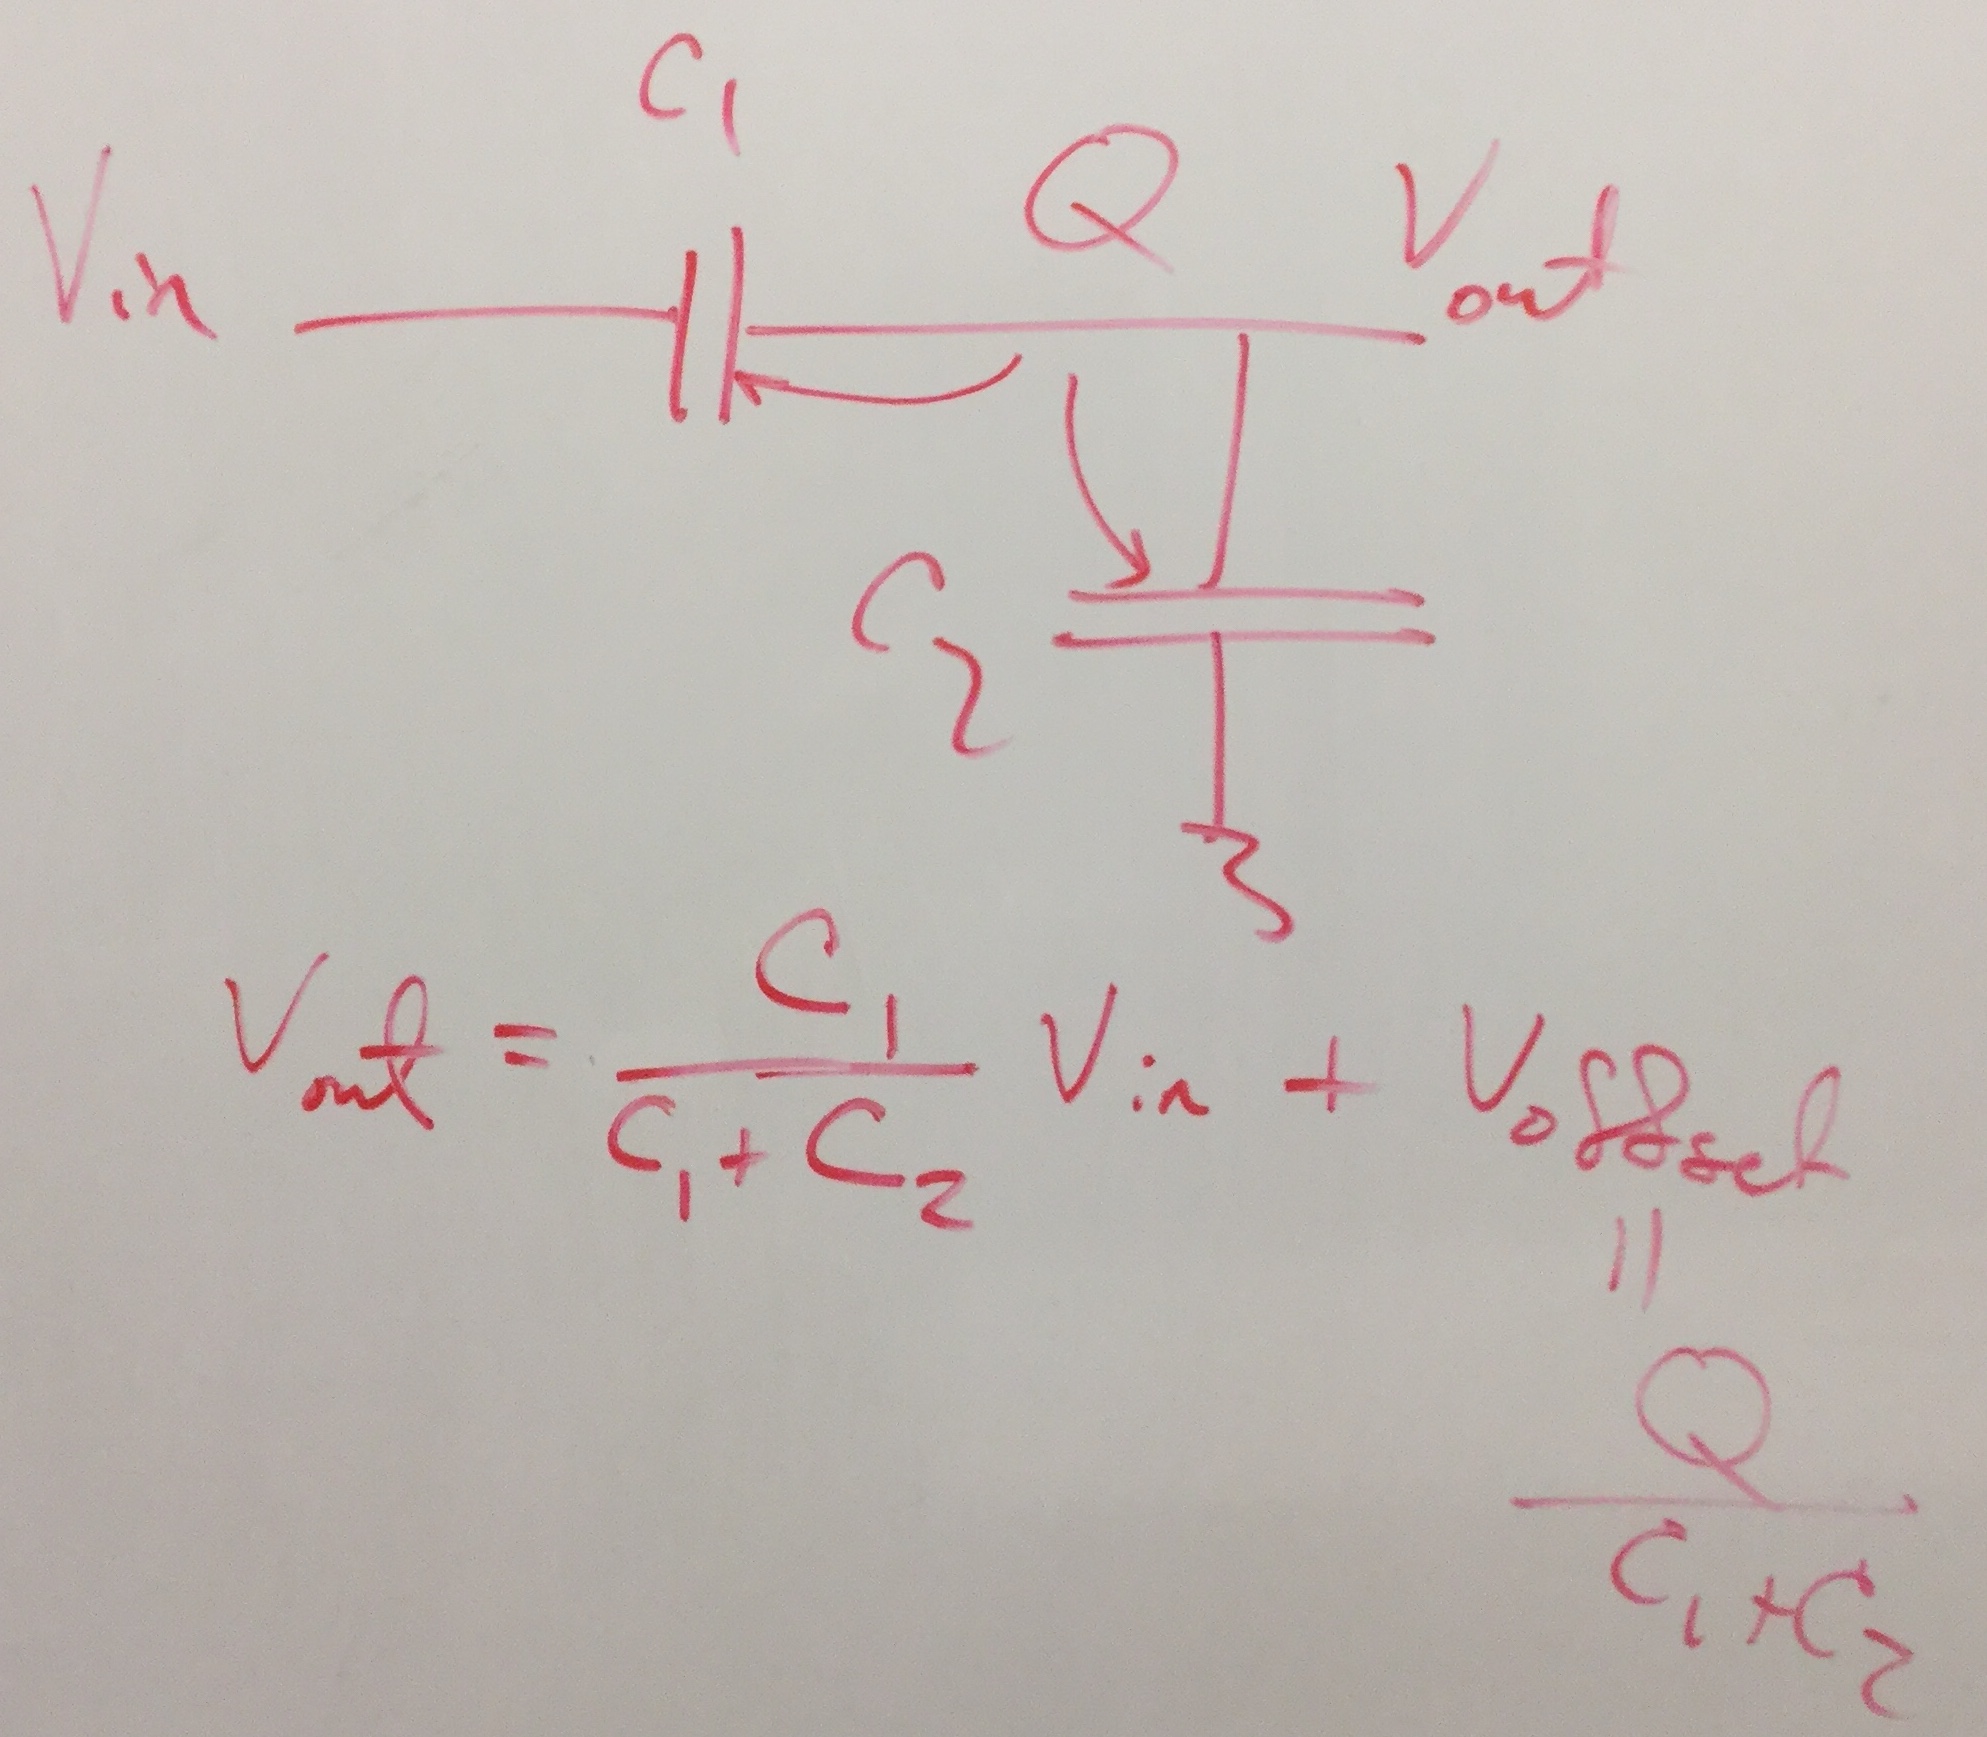 C₁
Vin Q Vout
C₂
Vout = C₁ / (C₁ + C₂) Vin + Voffset
||
Q / (C₁ + C₂)